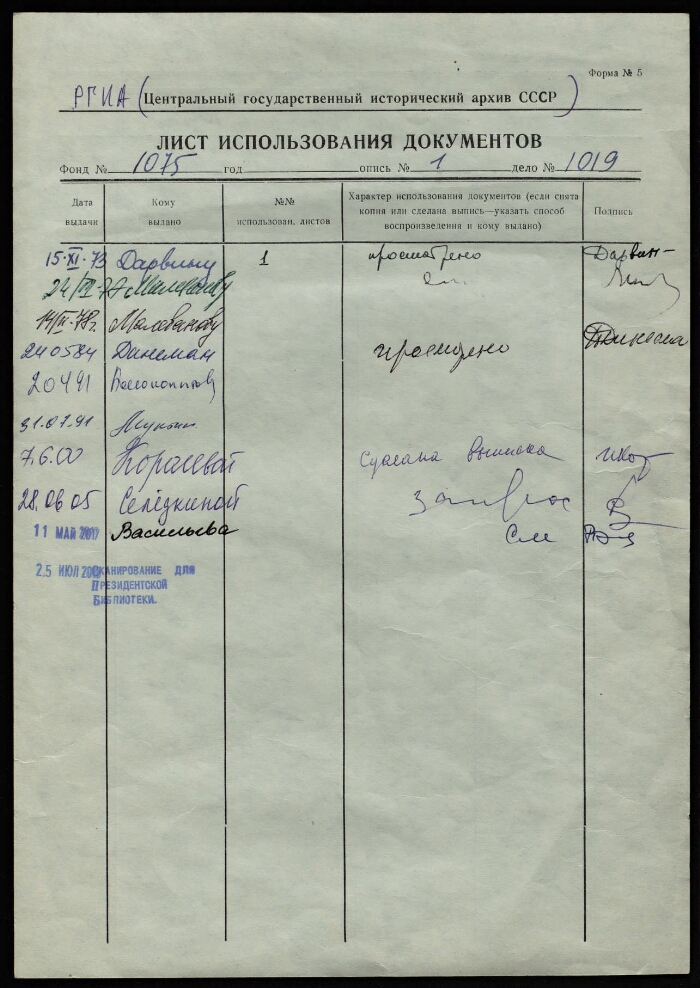 Форма № 5
РГИА (Центральный государственный исторический архив СССР)
ЛИСТ ИСПОЛЬЗОВАНИЯ ДОКУМЕНТОВ
Фонд № 1075 год опись № 1 дело № 1019
Дата выдачи Кому выдано №№ использован. листов Характер использования документов (если снята копия или сделана выпись—указать способ воспроизведения и кому выдано) Подпись
15·XI·73 Дарвину 1 просмотрено Дарвин
Молеванову
14/II-78г. Молеванову
240584 Динеман просмотрено
20491
31.07.91
7.6.00 Королевой Сделана выписка
28.06 05 Селёдкиной запрос
11 МАЙ Васильева См
25 ИЮЛ СКАНИРОВАНИЕ ДЛЯ
ПРЕЗИДЕНТСКОЙ
БИБЛИОТЕКИ.